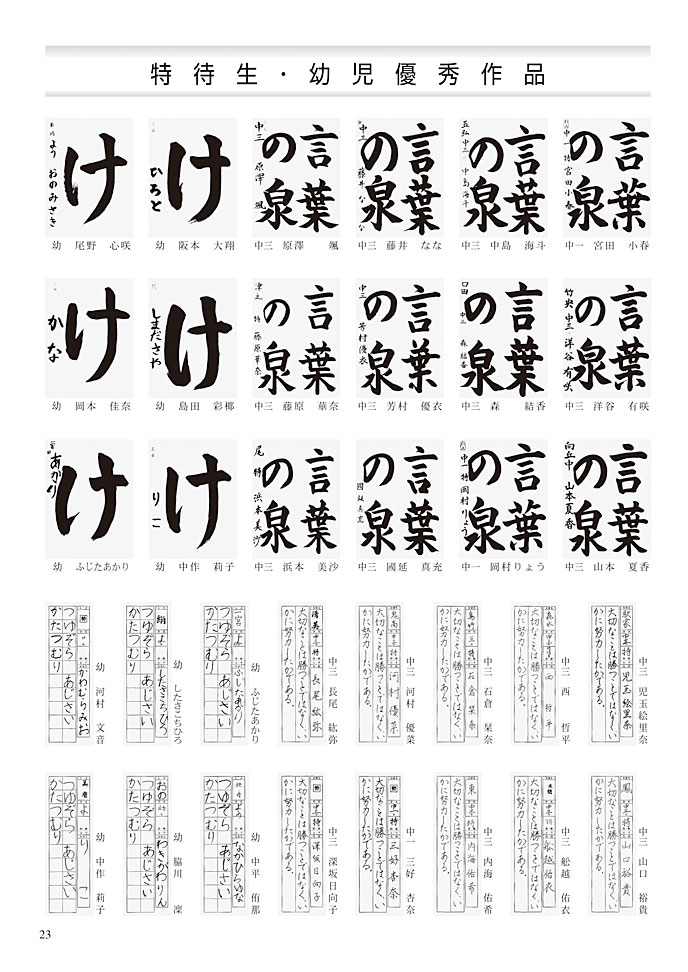 特待生・幼児優秀作品
言葉の泉
中一 特 宮田小春
中一 宮田 小春
言葉の泉
五弘 中三 中島海斗
中三 中島 海斗
言葉の泉
中三 藤井なな
中三 藤井 なな
言葉の泉
中三 原澤 颯
中三 原澤 颯
け
ひろと
幼 阪本 大翔
け
よう おのみさき
幼 尾野 心咲
言葉の泉
竹央 中三 洋谷有咲
中三 洋谷 有咲
言葉の泉
口田 中三 森 結香
中三 森 結香
言葉の泉
中三 芳村優衣
中三 芳村 優衣
言葉の泉
津之 特 藤原華奈
中三 藤原 華奈
け
しまださや
幼 島田 彩椰
け
かな
幼 岡本 佳奈
言葉の泉
向丘中 山本夏香
中三 山本 夏香
言葉の泉
中一 特 岡村りょう
中一 岡村りょう
言葉の泉
國延真充
中三 國延 真充
言葉の泉
尾 特 浜本美沙
中三 浜本 美沙
け
りこ
幼 中作 莉子
け
あかり
幼 ふじたあかり
中三 児玉絵里奈
中三 特 児玉絵里奈
大切なことは勝つことではなく、い
かに努力したかである。
中三 西 哲平
大切なことは勝つことではなく、い
かに努力したかである。
中三 石倉 栞奈
石倉栞奈
大切なことは勝つことではなく、い
かに努力したかである。
中三 河村 優菜
河村優菜
大切なことは勝つことではなく、い
かに努力したかである。
中三 長尾 紘弥
清美 中三 特 長尾紘弥
大切なことは勝つことではなく、い
かに努力したかである。
幼 ふじたあかり
二宮 よ ふじたあかり
つゆぞら あじさい
かたつむり
幼 したさこちひろ
よ したさこちひろ
つゆぞら あじさい
かたつむり
幼 河村 文音
かわむらみお
つゆぞら あじさい
かたつむり
中三 山口 裕貴
鳳 中三 特 山口裕貴
大切なことは勝つことではなく、い
かに努力したかである。
中三 舩越 佑衣
舩越佑衣
大切なことは勝つことではなく、い
かに努力したかである。
中三 内海 佑希
東 中三 特 内海佑希
大切なことは勝つことではなく、い
かに努力したかである。
中一 三好 杏奈
中一 特 三好杏奈
大切なことは勝つことではなく、い
かに努力したかである。
中三 深坂日向子
中三 特 深坂日向子
大切なことは勝つことではなく、い
かに努力したかである。
幼 中平 侑那
よう なかひらゆな
つゆぞら あじさい
かたつむり
幼 脇川 凜
おの わきがわりん
つゆぞら あじさい
かたつむり
幼 中作 莉子
よ りこ
つゆぞら あじさい
かたつむり
23